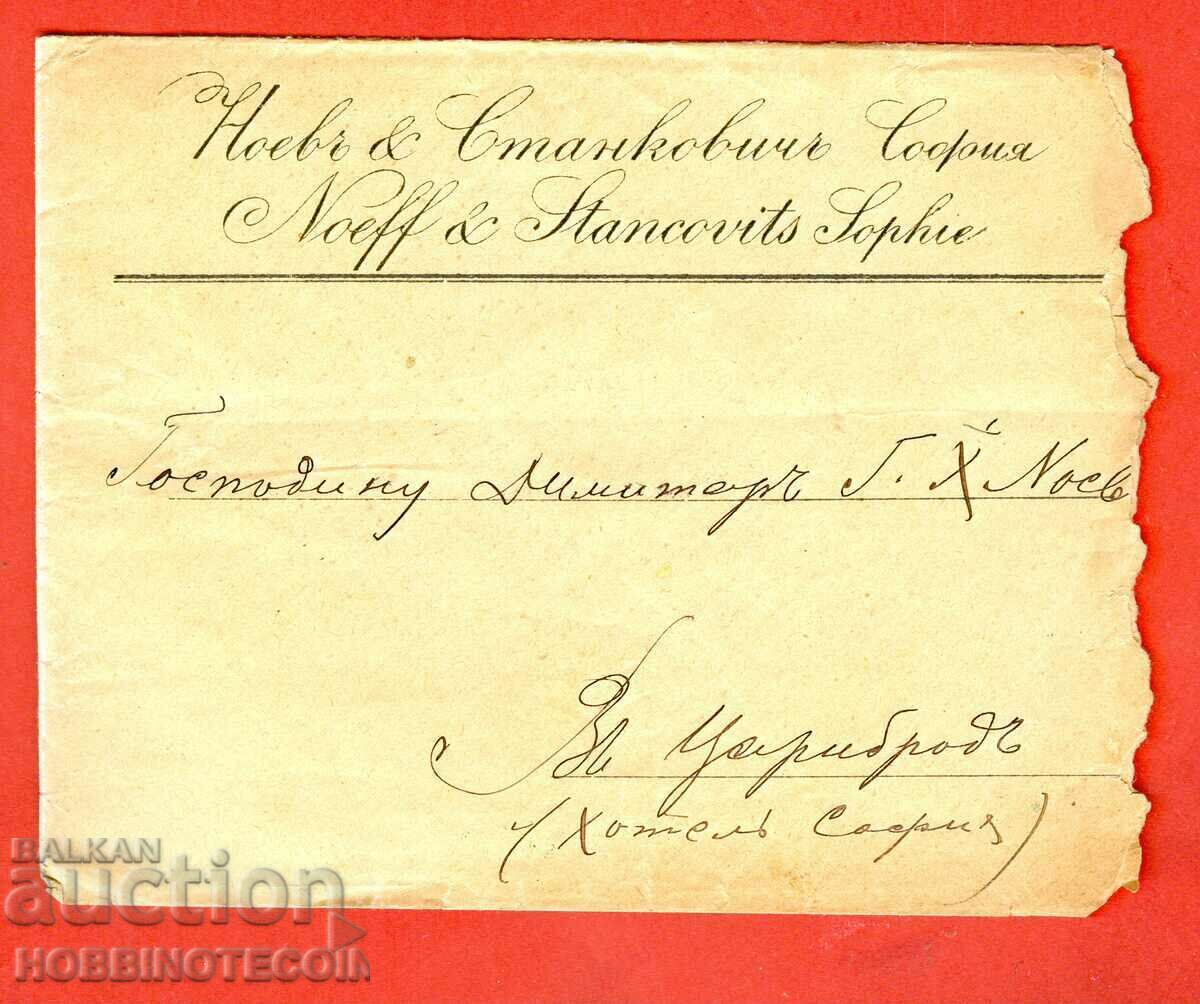 Ноевъ & Станковичъ София
Noeff & Stancovits Sophie
Господину Димитъръ Г. Х Ноев
Въ Царибродъ
(Хотелъ София)
BALKAN
auction
HOBBINOTECOIN